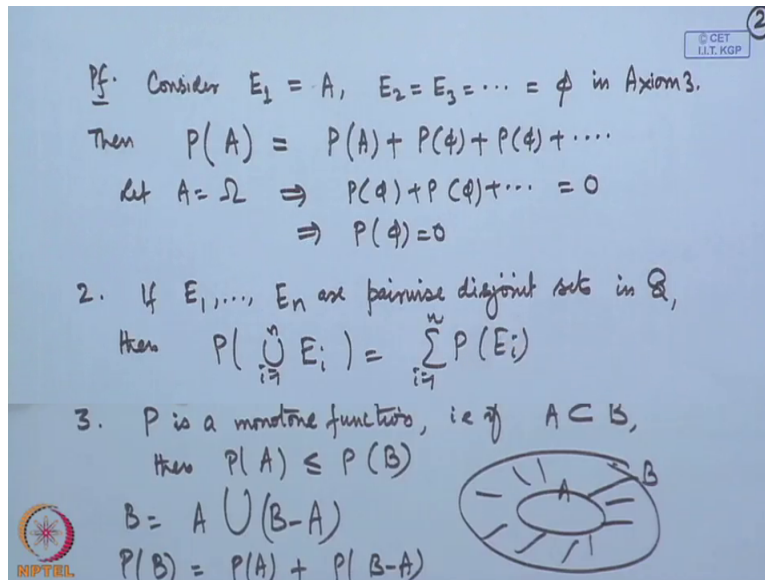 2
© CET
I.I.T. KGP
Pf. Consider E₁ = A, E₂ = E₃ = ··· = ϕ in Axiom 3.
Then P(A) = P(A) + P(ϕ) + P(ϕ) + ····
Let A = Ω ⇒ P(ϕ) + P(ϕ) + ··· = 0
⇒ P(ϕ) = 0
2. If E₁, ..., Eₙ are pairwise disjoint sets in Q,
then P(⋃ᵢ₌₁ⁿ Eᵢ) = ∑ᵢ₌₁ⁿ P(Eᵢ)
3. P is a monotone function, i.e if A ⊂ B,
then P(A) ≤ P(B)
A B
B = A ∪ (B-A)
P(B) = P(A) + P(B-A)
NPTEL